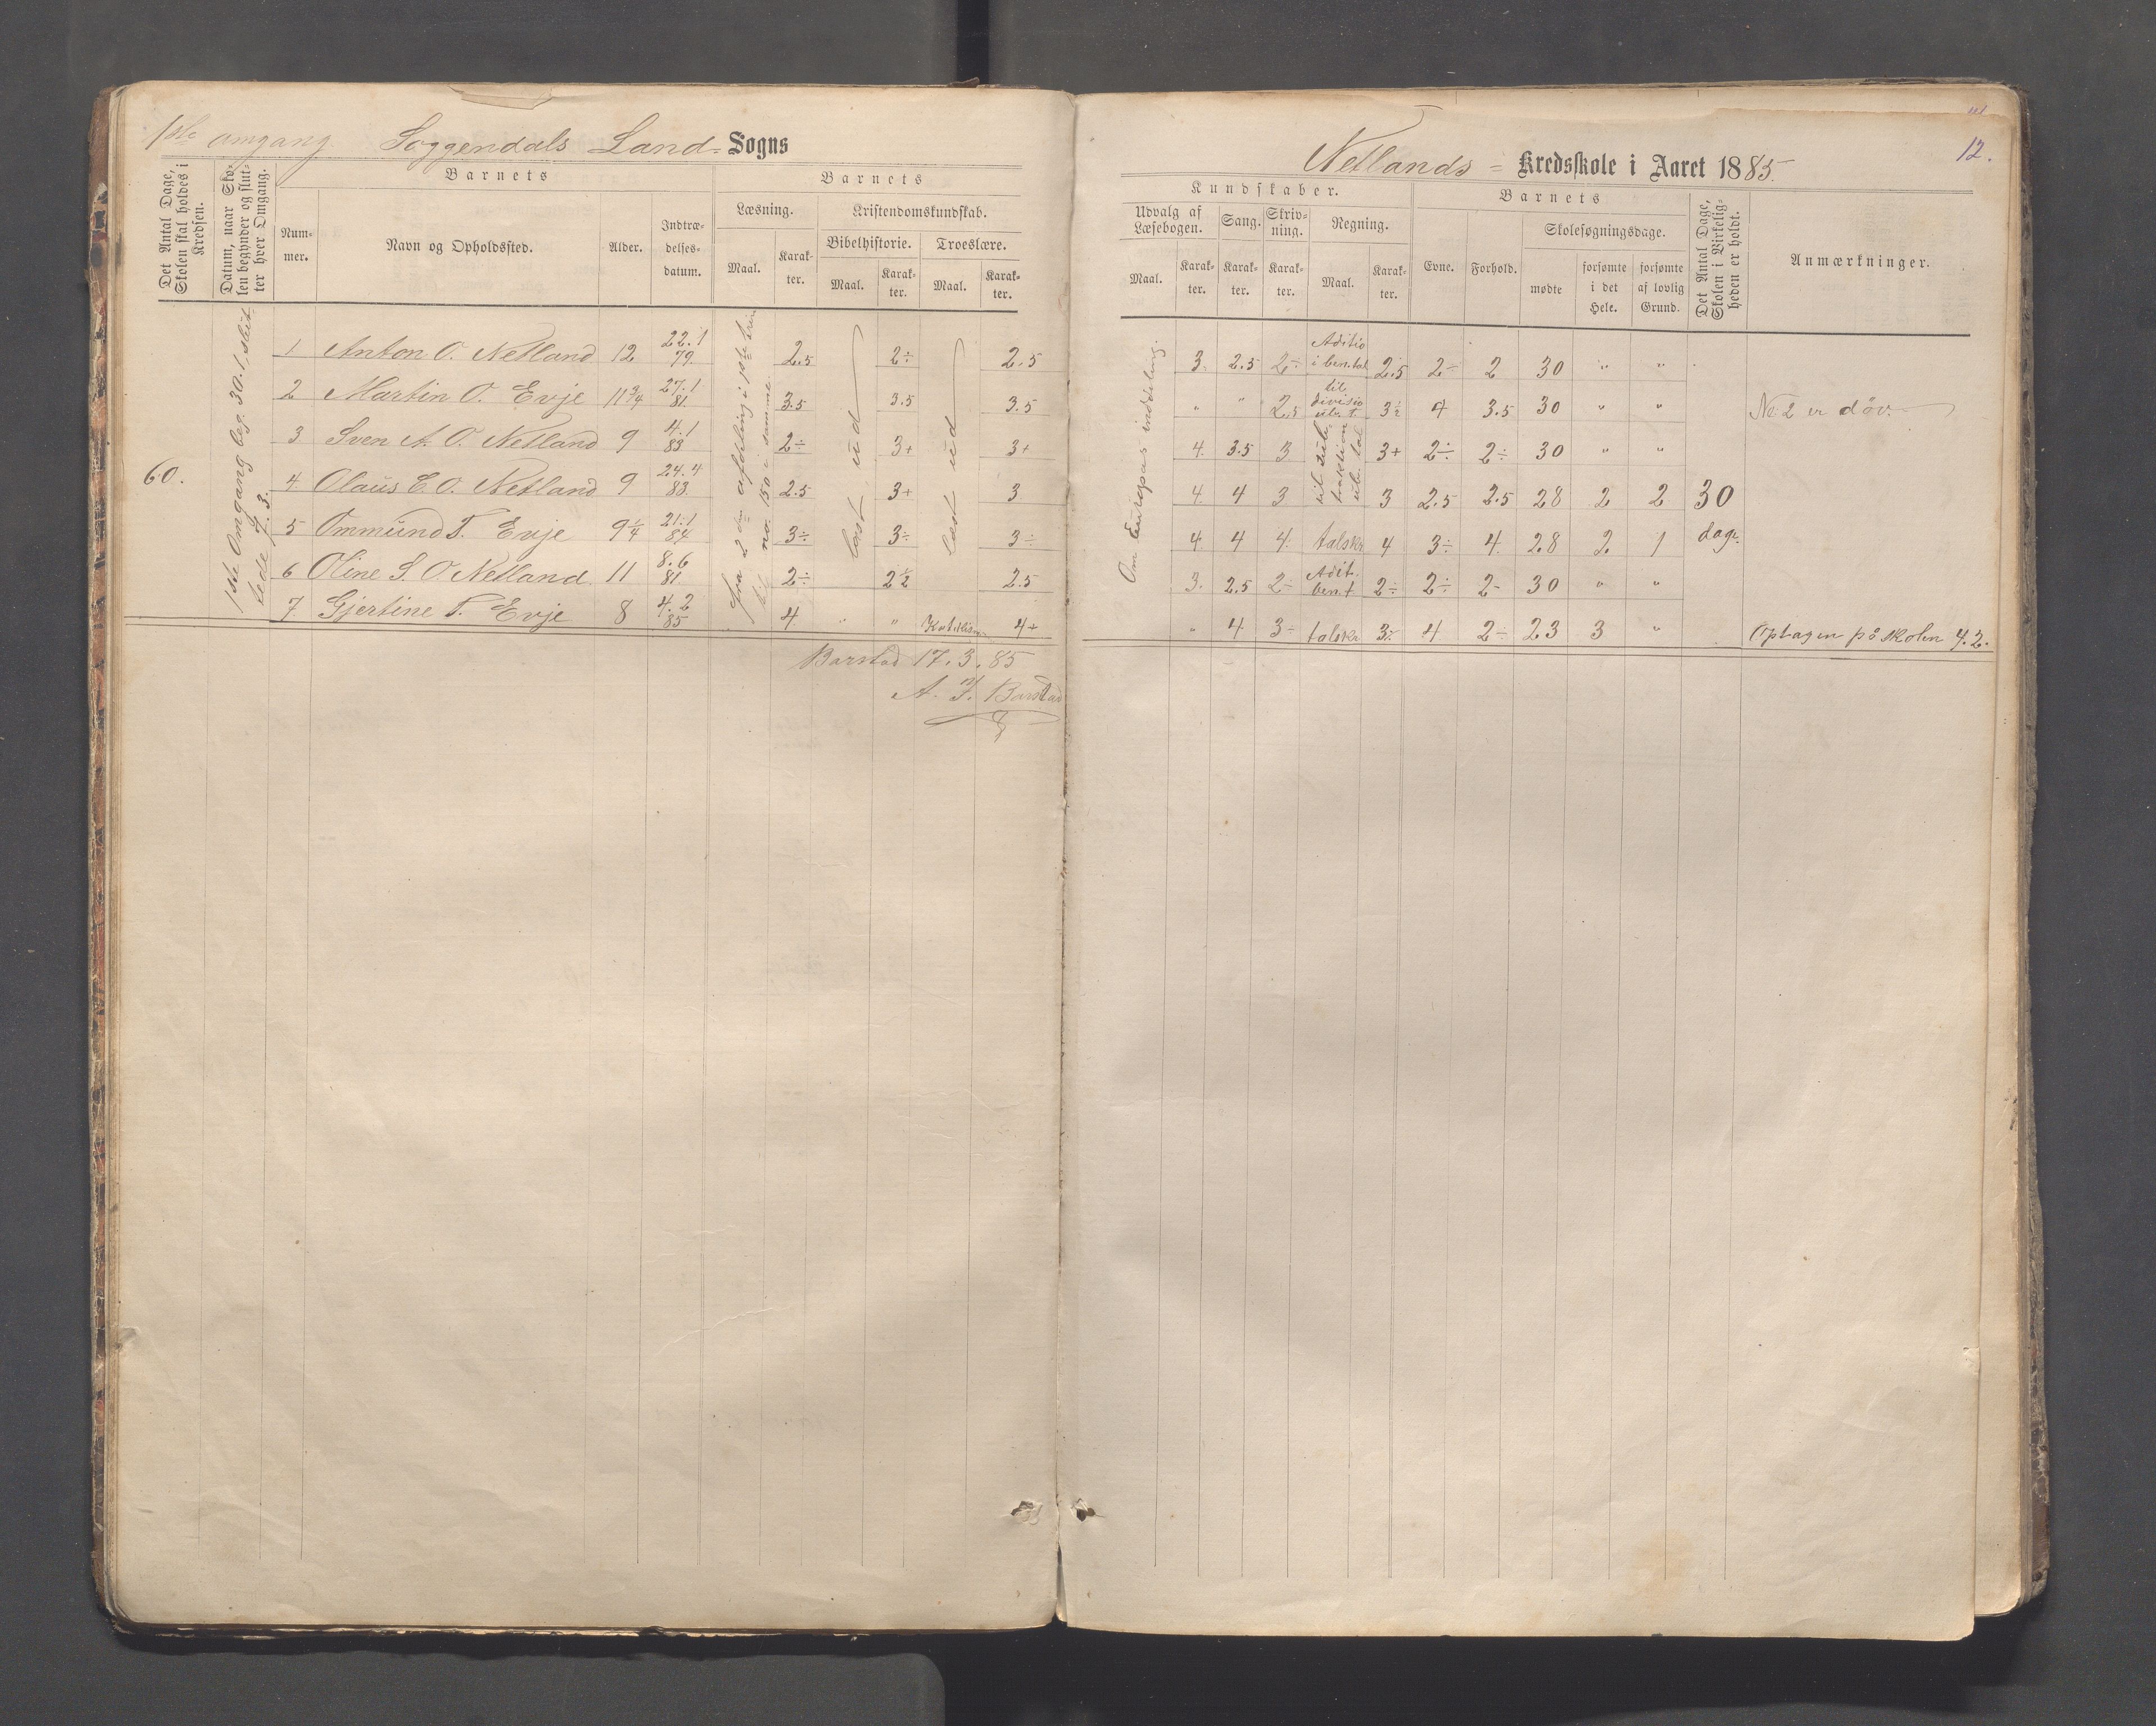 1ste omgang Soggendals Land- Sogns
Det Antal Dage, Skolen skal holdes i Kredsen.
Datum, naar Skolen begynder og slutter hver Omgang.
Barnets
Nummer.
Navn og Opholdssted.
Alder.
Indtrædelsesdatum.
Barnets
Læsning.
Maal.
Karakter.
Kristendomskundskab.
Bibelhistorie.
Maal.
Karakter.
Troeslære.
Maal.
Karakter.
60.
1ste Omgang beg. 30.1, sluttede 7.3.
fra 2den afdeling i 1ste trin til no. 150 i samme.
læst ud
læst ud
1 Anton O. Netland 12 22.1 79. 2.5 2÷ 2.5
2 Martin O. Evje 11 3/4 27.1 81. 3.5 3.5 3.5
3 Sven A. O. Netland 9 4.1 83 2÷ 3+ 3+
4 Olaus E. O. Netland 9 24.4 83. 2.5 3+ 3
5 Ommund T. Evje 9 1/4 21.1 84 3÷ 3÷ 3÷
6 Oline S. O. Netland 11 8.6 81 2÷ 2 1/2 2.5
7 Gjertine T. Evje 8 4.2 85 4 " " 4+
Barstad 17.3.85
A. T. Barstad
12.
Netlands- Kredsskole i Aaret 1885.
Kundskaber.
Udvalg af Læsebogen.
Maal.
Karakter.
Sang.
Karakter.
Skrivning.
Karakter.
Regning.
Maal.
Karakter.
Barnets
Evne.
Forhold.
Skolesøgningsdage.
mødte
forsømte i det Hele.
forsømte af lovlig Grund.
Det Antal Dage, Skolen i Virkeligheden er holdt.
Anmærkninger.
Om Europas inddeling.
3. 2.5 2÷ Aditio i ben. tal 2.5 2÷ 2 30 " "
" " 2.5 til divisio ube. t. 3 1/2 4 3.5 30 " " No 2 er døv.
4. 3.5 3 3+ 2÷ 2÷ 30 " "
4. 4 3 3 2.5 2.5 28 2 2 30
4. 4 4. talskr 4 3÷ 4. 28 2. 1 dage.
3. 2.5 2÷ Adit. ben. t 2÷ 2÷ 2- 30 " "
" 4 3÷ talskr 3÷ 4 2÷ 23 3 " Optagen på skolen 4.2.